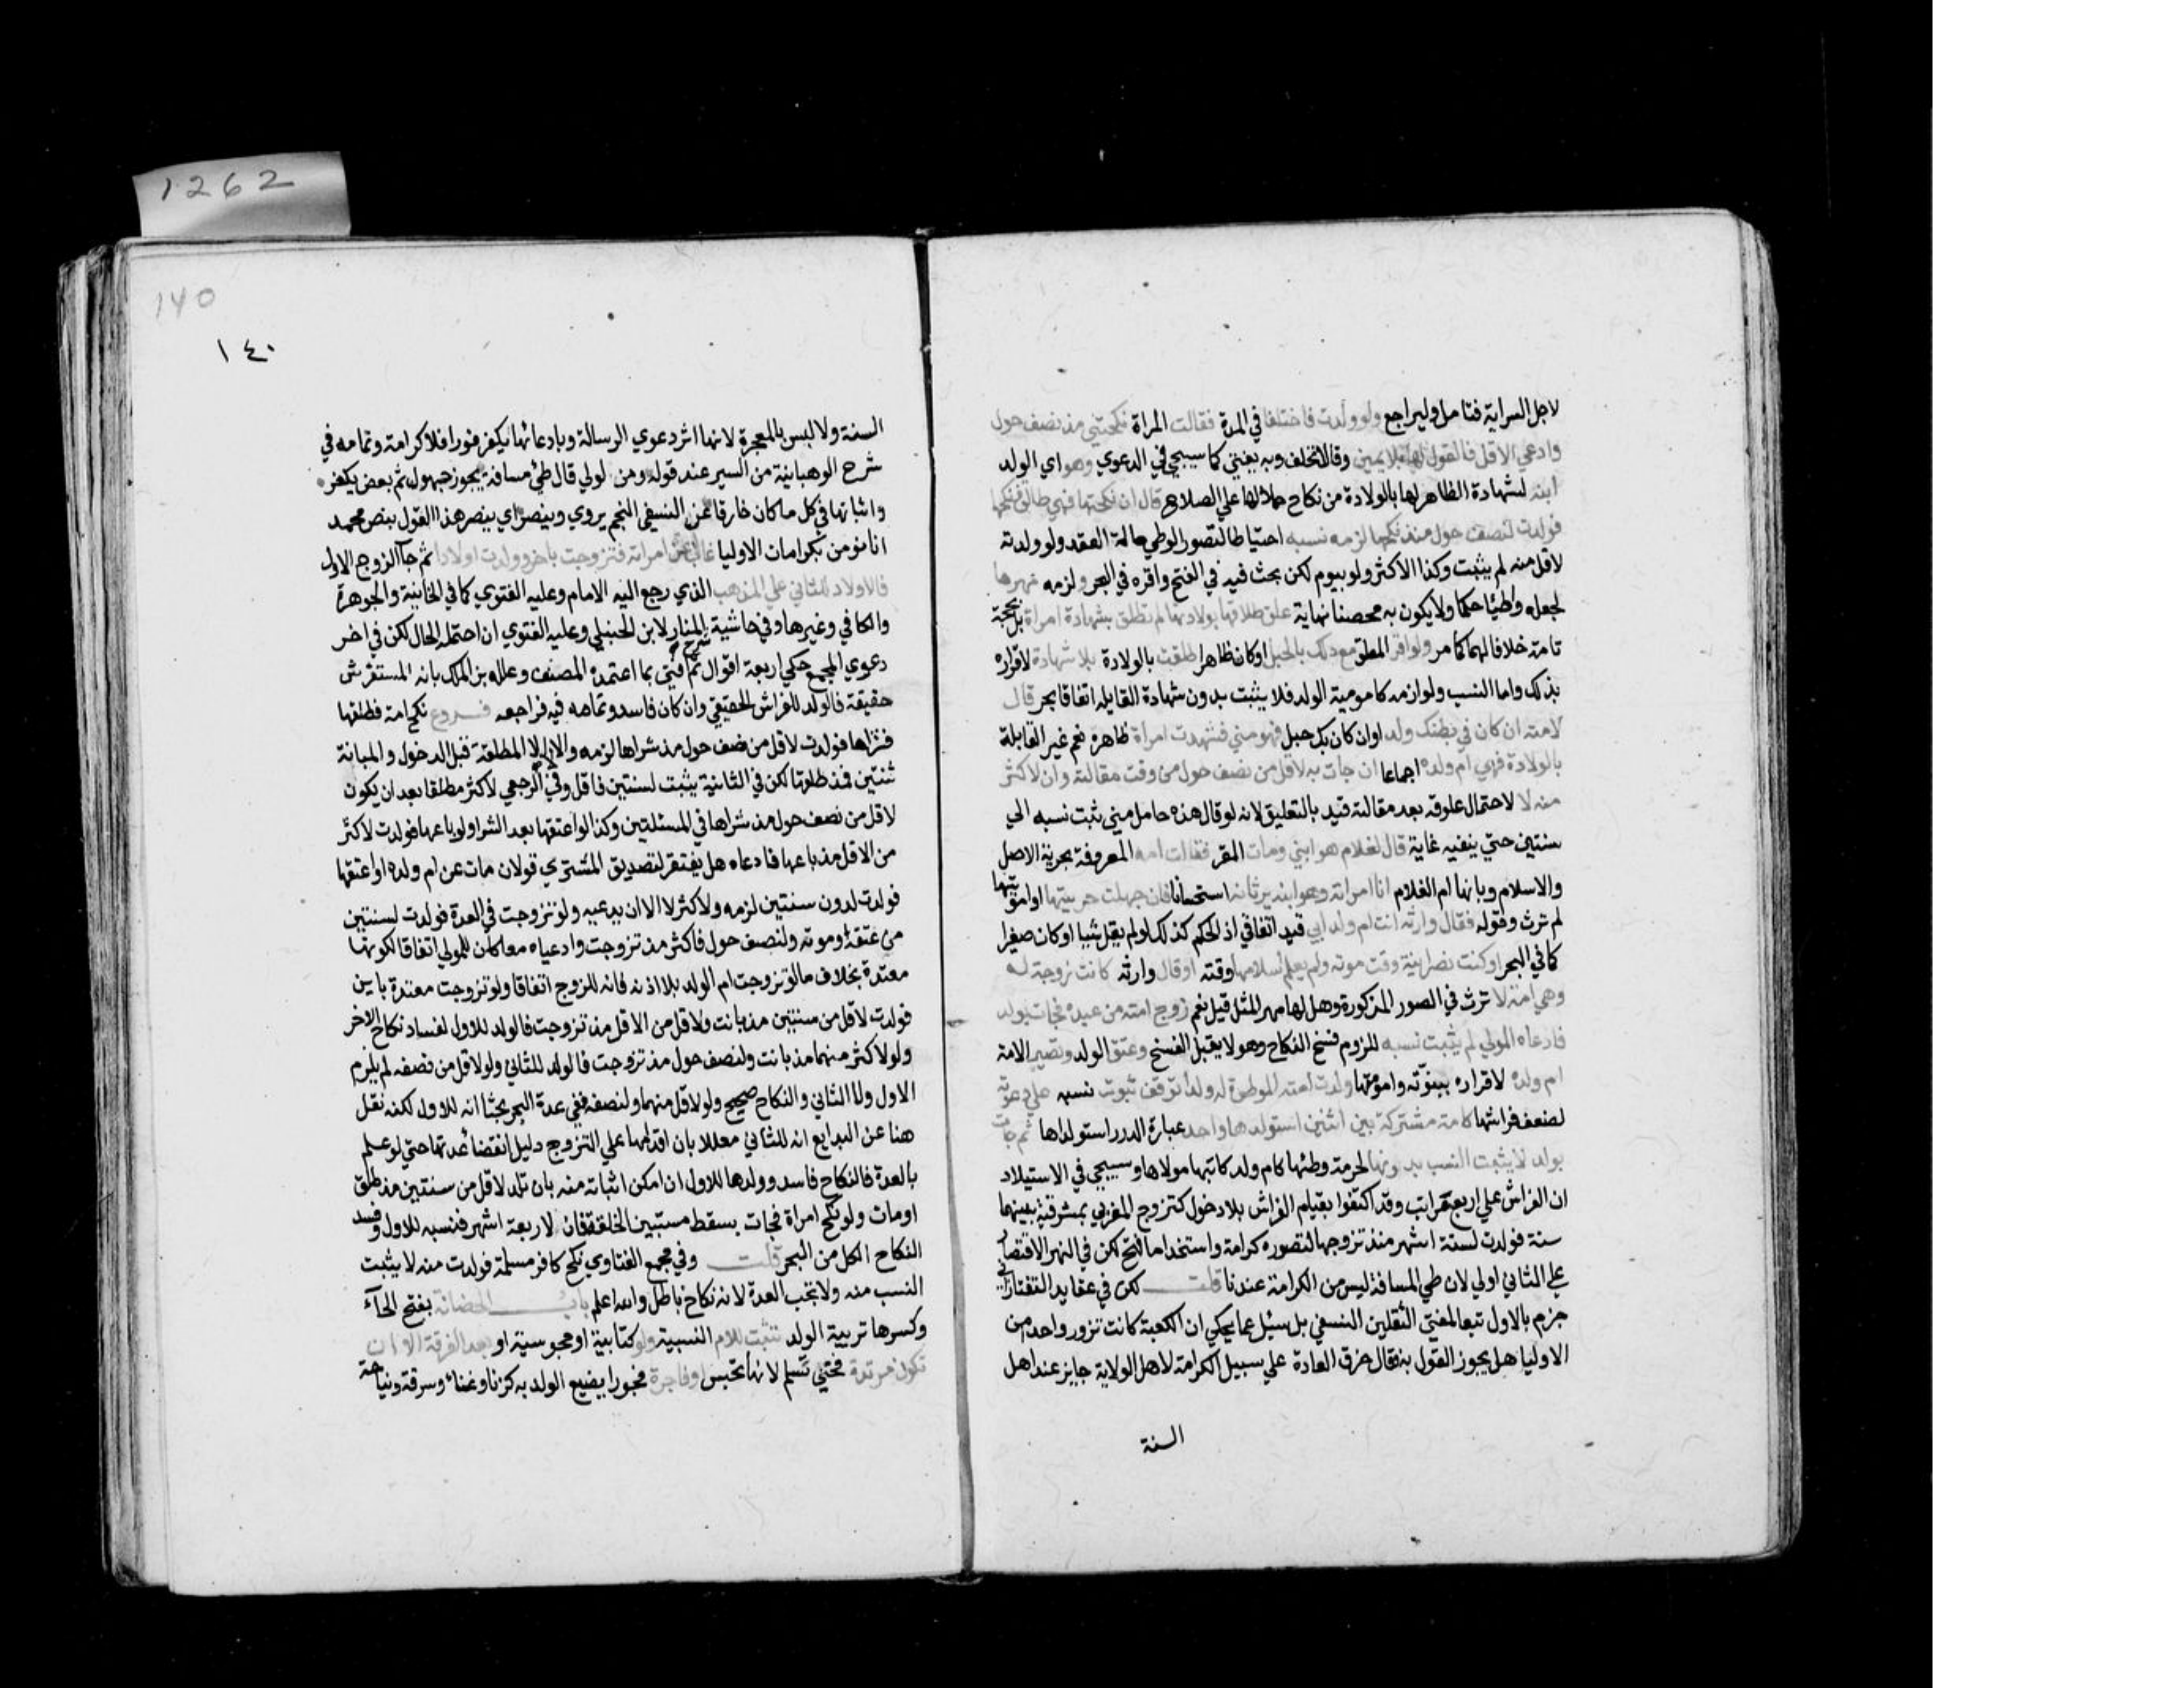 لاجل السراية فتامل وليراجع ولو ولدت فاختلفا في المدة فقالت المراة نكحتني مذ نصف حول
وادعي الاقل فالقول لها بلا يمين وقالا تحلف وبه يفتي كما سيجي في الدعوي وهو اي الولد
ابنه لشهادة الظاهر لها بالولادة من نكاح حملا لها علي الصلاح قال ان نكحتها فهي طالق فنكحها
فولدت لنصف حول منذ نكحها لزمه نسبه احتياطا لتصور الوطي حالة العقد ولو ولدته
لاقل منه لم يثبت وكذا الاكثر ولو بيوم لكن بحث فيه في الفتح واقره في البحر ولزمه مهرها
لجعله واطئا حكما ولا يكون به محصنا نهاية علق طلاقها بولادتها لم تطلق بشهادة امراة بل بحجة
تامة خلافا لهما كما مر ولو اقر المعلق مع ذلك بالحبل اوكان ظاهرا طلقت بالولادة بلا شهادة لاقراره
بذلك واما النسب ولوازمه كامومية الولد فلا يثبت بدون شهادة القابلة اتفاقا بحر قال
لامته ان كان في بطنك ولد اوان كان بك حبل فهو مني فشهدت امراة ظاهره نعم غير القابلة
بالولادة فهي ام ولده اجماعا ان جات به لاقل من نصف حول من وقت مقالته وان لاكثر
منه لا لاحتمال علوقه بعد مقالته قيد بالتعليق لانه لو قال هذه حامل مني ثبت نسبه الي
سنتين حتي ينفيه غاية قال لغلام هو ابني ومات المقر فقالت امه المعروفة بحرية الاصل
والاسلام وبانها ام الغلام انا امراته وهو ابنه يرثانه استحسانا فان جهلت حريتها او امومتها
لم ترث وقوله فقال وارثه انت ام ولد ابي قيد اتفاقي اذ الحكم كذلك لو لم يقل شيا اوكان صغيرا
كما في البحر او كنت نصرانية وقت موته ولم يعلم اسلامها وقته اوقال وارثه كانت زوجة له
وهي امة لا ترث في الصور المذكورة وهل لها مهر المثل قيل نعم زوج امته من عبده فجات بولد
فادعاه المولي لم يثبت نسبه للزوم فسخ النكاح وهو لا يقبل الفسخ وعتق الولد وتصير الامة
ام ولده لاقراره ببنوته وامومتها ولدت امته الموطوة له ولدا توقف ثبوت نسبه علي دعوته
لضعف فراشها كامة مشتركة بين اثنين استولدها واحد عبارة الدرر استولداها ثم جات
بولد لا يثبت النسب بدونها لحرمة وطئها كام ولد كاتبها مولاها وسيجي في الاستيلاد
ان الفراش علي اربع مراتب وقد اكتفوا بقيام الفراش بلا دخول كتزوج المغربي بمشرقية بينهما
سنة فولدت لستة اشهر منذ تزوجها لتصوره كرامة واستخداما فتح لكن في النهر الاقتصار
علي الثاني اولي لان طي المسافة ليس من الكرامة عندنا قلت لكن في عقايد التفتازاني
جزم بالاول تبعا لمفتي الثقلين النسفي بل سئل عما يحكي ان الكعبة كانت تزور واحدا من
الاوليا هل يجوز القول به فقال خرق العادة علي سبيل الكرامة لاهل الولاية جايز عند اهل
السنة
1262
140
١٤٠
السنة ولا لبس بالمعجزة لانها اثر دعوي الرسالة وبادعائها يكفر فورا فلا كرامة وتمامه في
شرح الوهبانية من السير عند قوله ومن لولي قال طي مسافة يجوز جهول ثم بعض يكفر
واثباتها في كل ما كان خارقا عن النسفي النجم يروي وينصر اي ينصر هذا القول بنص محمد
انا نومن بكرامات الاوليا غاب عن امراته فتزوجت باخر وولدت اولادا ثم جآ الزوج الاول
فالاولاد للثاني علي المذهب الذي رجع اليه الامام وعليه الفتوي كما في الخانية والجوهرة
والكافي وغيرها وفي حاشية شرح المنار لابن الحنبلي وعليه الفتوي ان احتمله الحال لكن في اخر
دعوي المجمع حكي اربعة اقوال ثم افتي بما اعتمده المصنف وعلله بن الملك بانه المستفرش
حقيقة فالولد للفراش الحقيقي وان كان فاسدا وتمامه فيه فراجعه فروع نكح امة فطلقها
فشراها فولدت لاقل من نصف حول مذ شراها لزمه والا لا الا المطلقة قبل الدخول والمبانة
ثنتين فمذ طلقها لكن في الثانية يثبت لسنتين فاقل وفي الرجعي لاكثر مطلقا بعد ان يكون
لاقل من نصف حول مذ شراها في المسئلتين وكذا لو اعتقها بعد الشرا ولو باعها فولدت لاكثر
من الاقل مذ باعها فادعاه هل يفتقر لتصديق المشتري قولان مات عن ام ولده او اعتقها
فولدت لدون سنتين لزمه ولاكثر لا الا ان يدعيه ولو تزوجت في العدة فولدت لسنتين
من عتقه او موته ولنصف حول فاكثر مذ تزوجت وادعياه معا كان للمولي اتفاقا لكونها
معتدة بخلاف ما لو تزوجت ام الولد بلا اذنه فانه للزوج اتفاقا ولو تزوجت معتدة باين
فولدت لاقل من سنتين مذ بانت ولاقل من الاقل مذ تزوجت فالولد للاول لفساد نكاح الاخر
ولو لاكثر منهما مذ بانت ولنصف حول مذ تزوجت فالولد للثاني ولو لاقل من نصفه لم يلزم
الاول ولا الثاني والنكاح صحيح ولو لاقل منهما ولنصفه ففي عدة البحر بحثا انه للاول لكنه نقل
هنا عن البدايع انه للثاني معللا بان اقدامها علي التزوج دليل انقضا عدتها حتي لو علم
بالعدة فالنكاح فاسد وولدها للاول ان امكن اثباته منه بان تلد لاقل من سنتين مذ طلق
اومات ولو نكح امراة فجات بسقط مستبين الخلقة فان لاربعة اشهر فنسبه للاول وفسد
النكاح الكل من البحر قلت وفي مجمع الفتاوي نكح كافر مسلمة فولدت منه لا يثبت
النسب منه ولا تجب العدة لانه نكاح باطل والله اعلم باب الحضانة بفتح الحآء
وكسرها تربية الولد تثبت للام النسبية ولو كتابية او مجوسية او بعد الفرقة الا ان
تكون مرتدة فحتي تسلم لانها تحبس او فاجرة فجورا يضيع الولد به كزنا وغناء وسرقة ونياحة